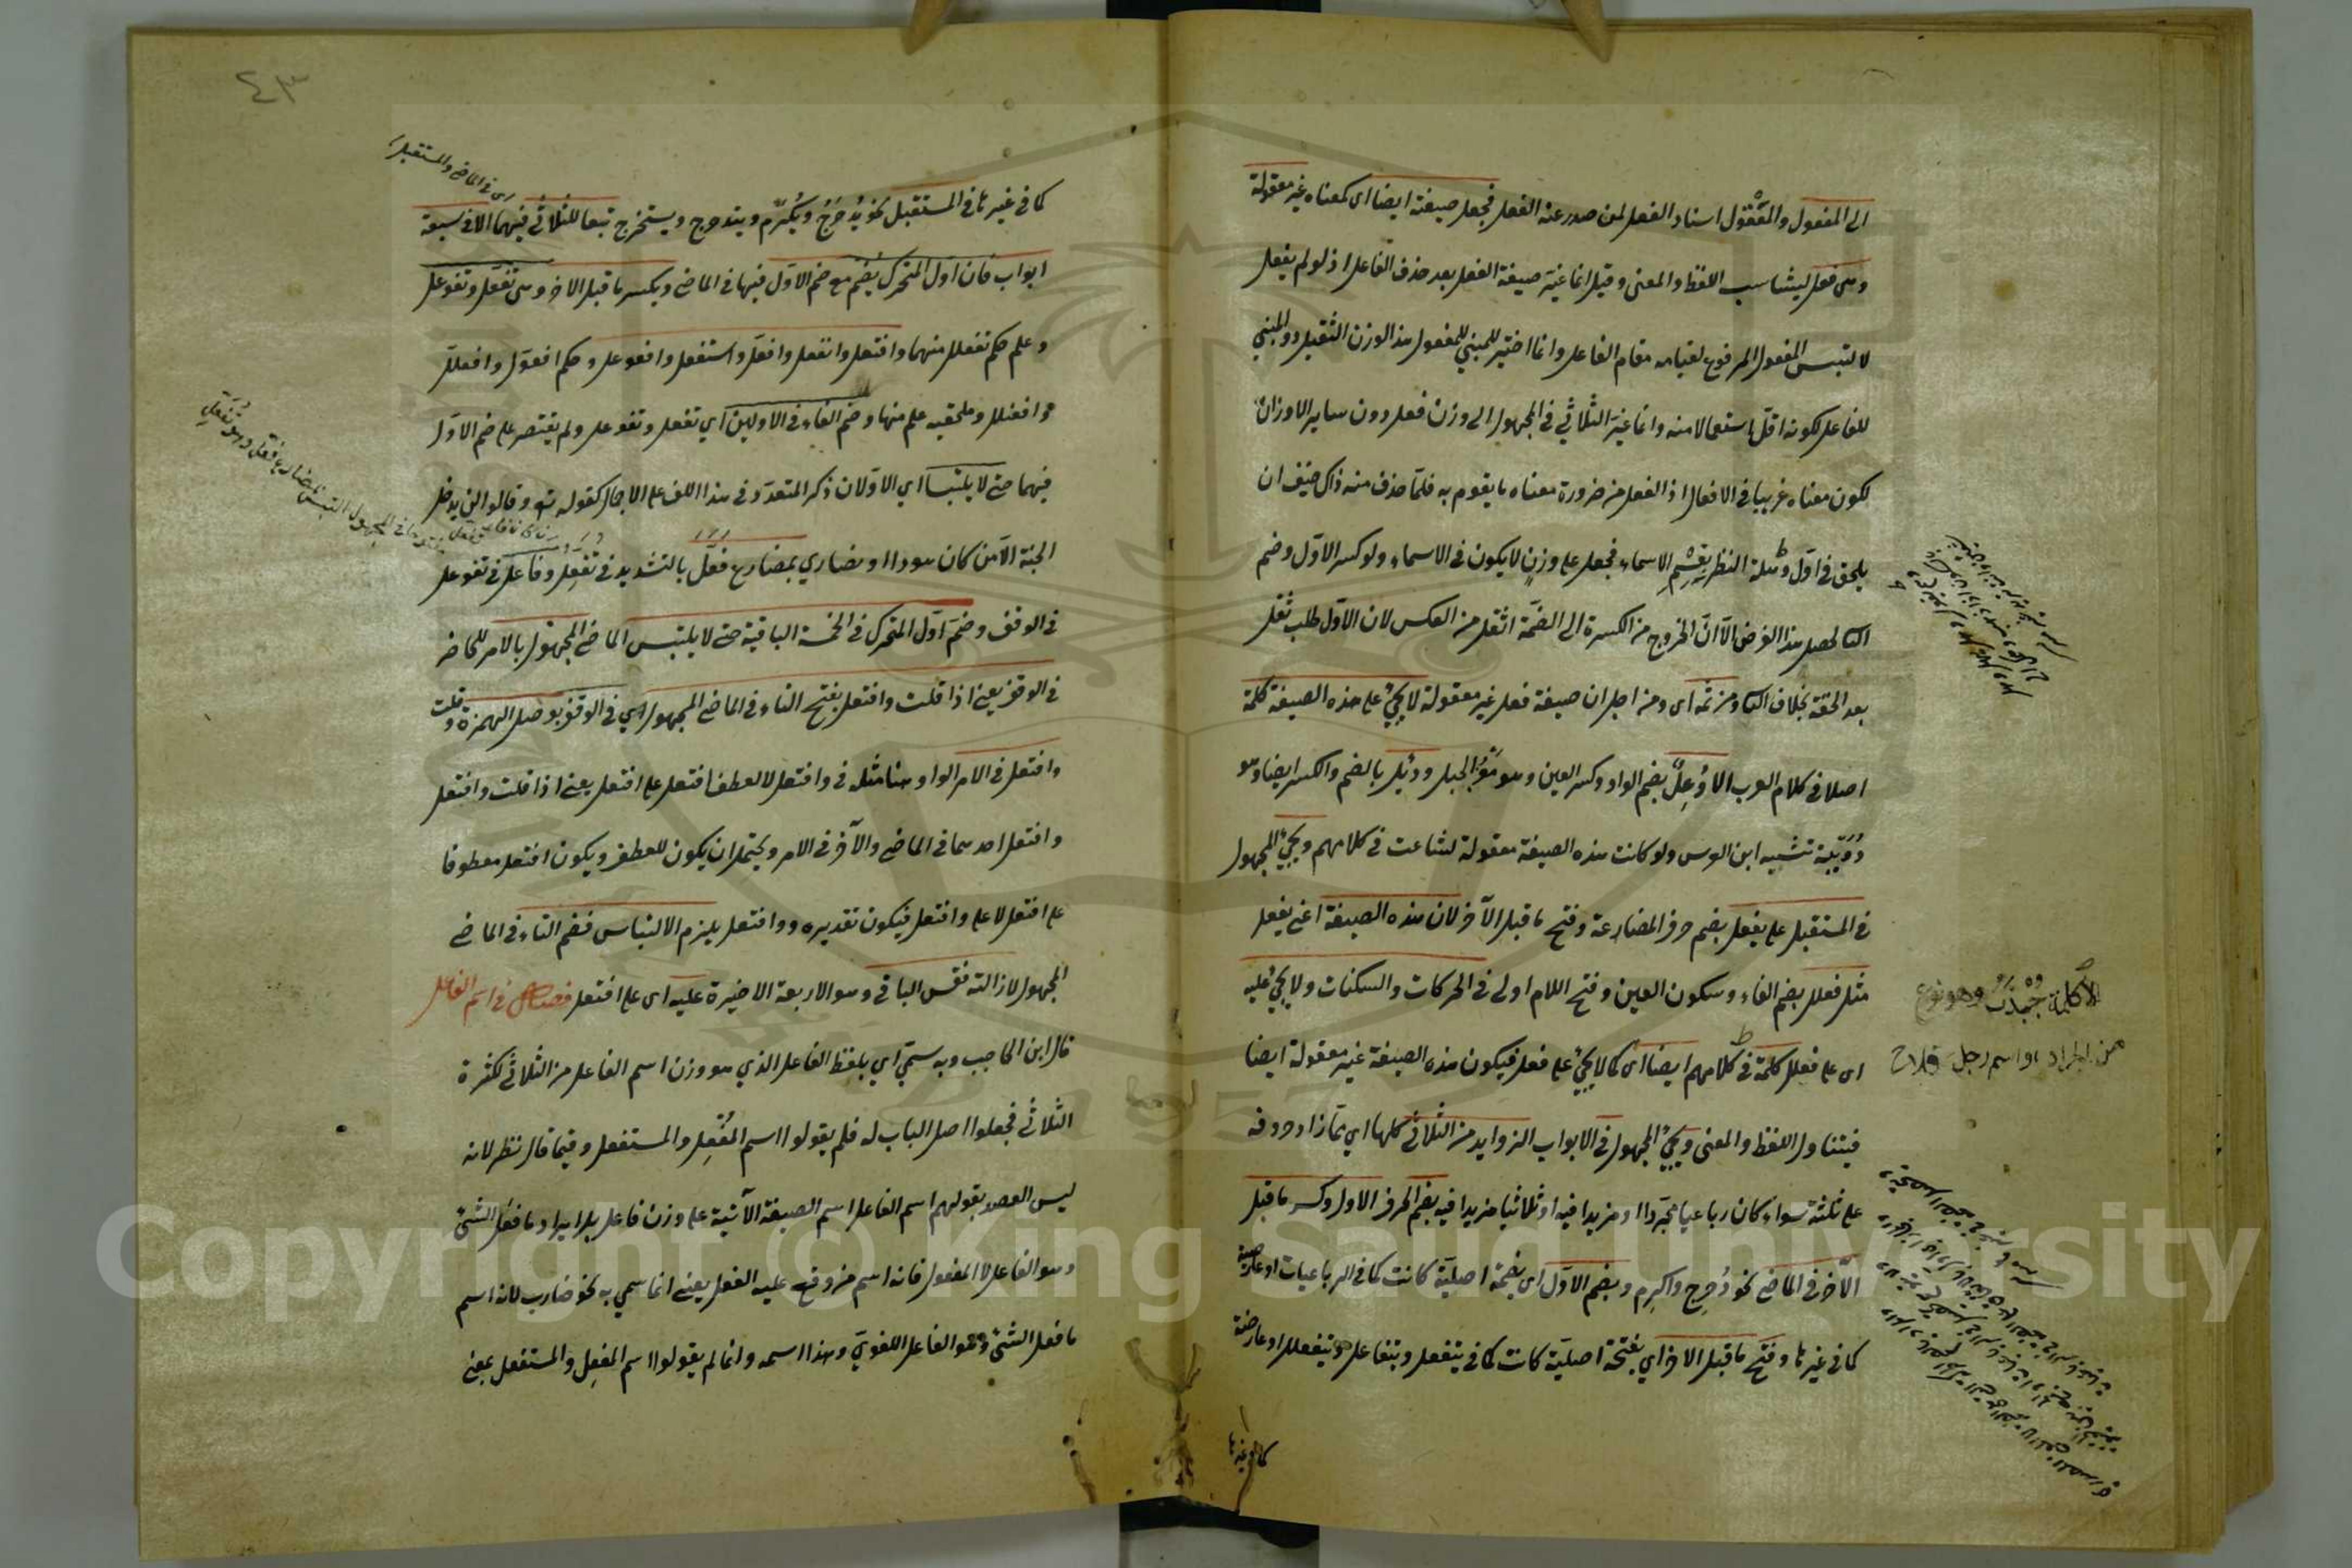 الى المفعول والمعقول اسناد الفعل لمن صدر عنه الفعل فجعل صيغته ايضا اى كمعناه غير معقولة
وهى فعل ليناسب اللفظ والمعنى وقيل انما غير صيغة الفعل بعد حذف الفاعل اذ لو لم يفعل
لالتبس المفعول المرفوع لقيامه مقام الفاعل وانما اختير للمبني للمفعول هذا الوزن الثقيل دون المبني
للفاعل لكونه اقل استعمالا منه وانما غير الثلاثي في المجهول الى وزن فعل دون ساير الاوزان
لكون معناه غريبا في الافعال اذ الفعل من ضرورة معناه ما يقوم به فلما حذف منه ذلك خيف ان
يلحق في اول وهلة النظر بقسم الاسماء فجعل على وزن لا يكون في الاسماء ولو كسر الاول وضم
الثاني لحصل هذا الغرض الا ان الخروج من الكسرة الى الضمة اثقل من العكس لان الاول طلب ثقل
بعد الخفة بخلاف الثاني ومن ثمه اى ومن اجل ان صيغة فعل غير معقولة لا يجئ على هذه الصيغة كلمة
اصلا في كلام العرب الا وُعِلٌ بضم الواو وكسر العين وهو معز الجبل ودئل بالضم والكسر ايضا وهو
دُوَيّبة تشبيه ابن العرس ولو كانت هذه الصيغة معقولة لشاعت في كلامهم ويجئ المجهول
في المستقبل على يفعل بضم حرف المضارعة وفتح ما قبل الآخر لان هذه الصيغة اعنى يفعل
مثل فعلل بضم الفاء وسكون العين وفتح اللام اولى في الحركات والسكنات ولا يجئ عليه
اى على فعلل كلمة في كلامهم ايضا اى كما لا يجئ على فعل فيكون هذه الصيغة غير معقولة ايضا
فيتناول اللفظ والمعنى ويجئ المجهول في الابواب الزوايد من الثلاثي كلها اي مما زاد حروفه
على ثلثة سواء كان رباعيا مجردا او مزيدا فيه او ثلاثيا مزيدا فيه بضم الحرف الاول وكسر ما قبل
الآخر في الماضي نحو دُحرِج واكرِم وبضم الاول اى بضمة اصلية كانت كما في الرباعيات او عارضية
كما في غيرها وفتح ما قبل الاخر اي بفتحة اصلية كانت كما في يتفعل ويتفاعل ويتفعلل او عارضية
كما في غيرها
الا كلمة جُخْدَبٌ وهو نوع
من الجراد او اسم رجل فلاح
٤٣
اى في الماضي والمستقبل
كما في غيرها في المستقبل نحو يُدحرَجُ ويُكرَم ويتدحرج ويستخرج تبعا للثلاثي فيهما الا في سبعة
ابواب فان اول المتحرك يُضَم مع ضم الاول فيها في الماضي ويكسر ما قبل الاخر وهى تفعل وتفوعل
وعلم حكم تفعلل منهما وافتعل وانفعل وافعل واستفعل وافعوعل وحكم افعول وافعلل
وافعنلل وملحقيه علم منها وضم الفاء في الاولين اي تفعل وتفوعل ولم يقتصر على ضم الاول
فيهما حتى لا يلتبسا اي الاولان ذكر المتعدد في هذا اللف على الاجمال كقوله تع وقالوا لن يدخل
الجنة الا من كان هودا او نصارى بمضارع فعّل بالتشديد في تفعل وفاعل في تفوعل
في الوقف وضم اول المتحرك في الخمسة الباقية حتى لا يلتبس الماضي المجهول بالامر الحاضر
في الوقف يعنى اذا قلت وافتعل بفتح التاء في الماضي المجهول اي في الوقف بوصل الهمزة وقلت
وافتعل في الامر الواو هنا مثله في وافتعل لا لعطف افتعل على افتعل يعنى اذا قلت وافتعل
وافتعل احدهما في الماضي والآخر في الامر ويحتمل ان يكون للعطف ويكون افتعل معطوفا
على افتعل لا على وافتعل فيكون تقديره ووافتعل يلزم الالتباس فضم التاء في الماضي
المجهول لازالته فقس الباقي وهو الاربعة الاخيرة عليه اى على افتعل فصل في اسم الفاعل
قال ابن الحاجب وبه سمّي اي بلفظ الفاعل الذي هو وزن اسم الفاعل من الثلاثي لكثرة
الثلاثي فجعلوا اصل الباب له فلم يقولوا اسم المُفعِل والمستفعل وفيما قال نظر لانه
ليس القصد بقولهم اسم الفاعل اسم الصيغة الآتية على وزن فاعل بل ايراد ما فعل الشئ
وهو الفاعل لا المفعول فانه اسم من وقع عليه الفعل يعنى انما سمي به نحو ضارب لانه اسم
ما فعل الشئ وهو الفاعل اللغوي وهذا اسمه وانما لم يقولوا اسم المفعِل والمستفعل بمعنى
Copyright © King Saud University
1957